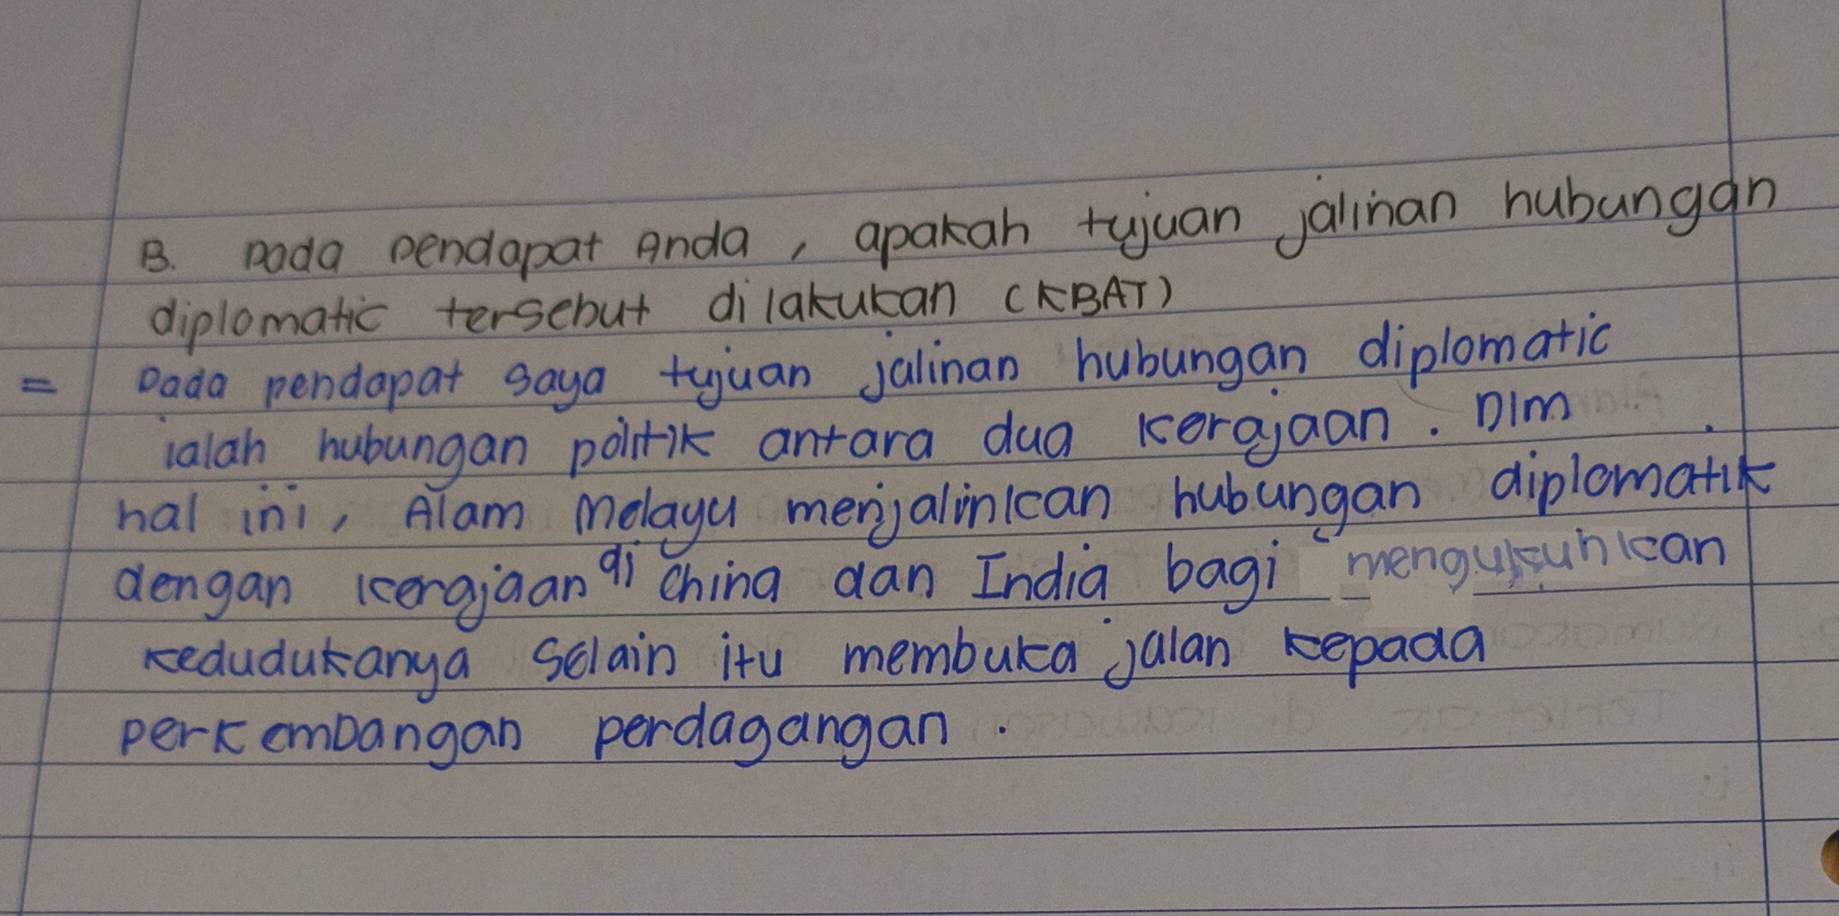 B. Pada pendapat Anda, apakah tujuan jalinan hubungan
diplomatic tersebut dilakukan (KBAT)
= Pada pendapat saya tujuan jalinan hubungan diplomatic
ialah hubungan politik antara dua kerajaan. Dlm
hal ini, Alam Melayu menjalinkan hubungan diplomatik
dengan kerajaan di China dan India bagi mengukuhkan
kedudukanya selain itu membuka jalan kepada
perkembangan perdagangan.